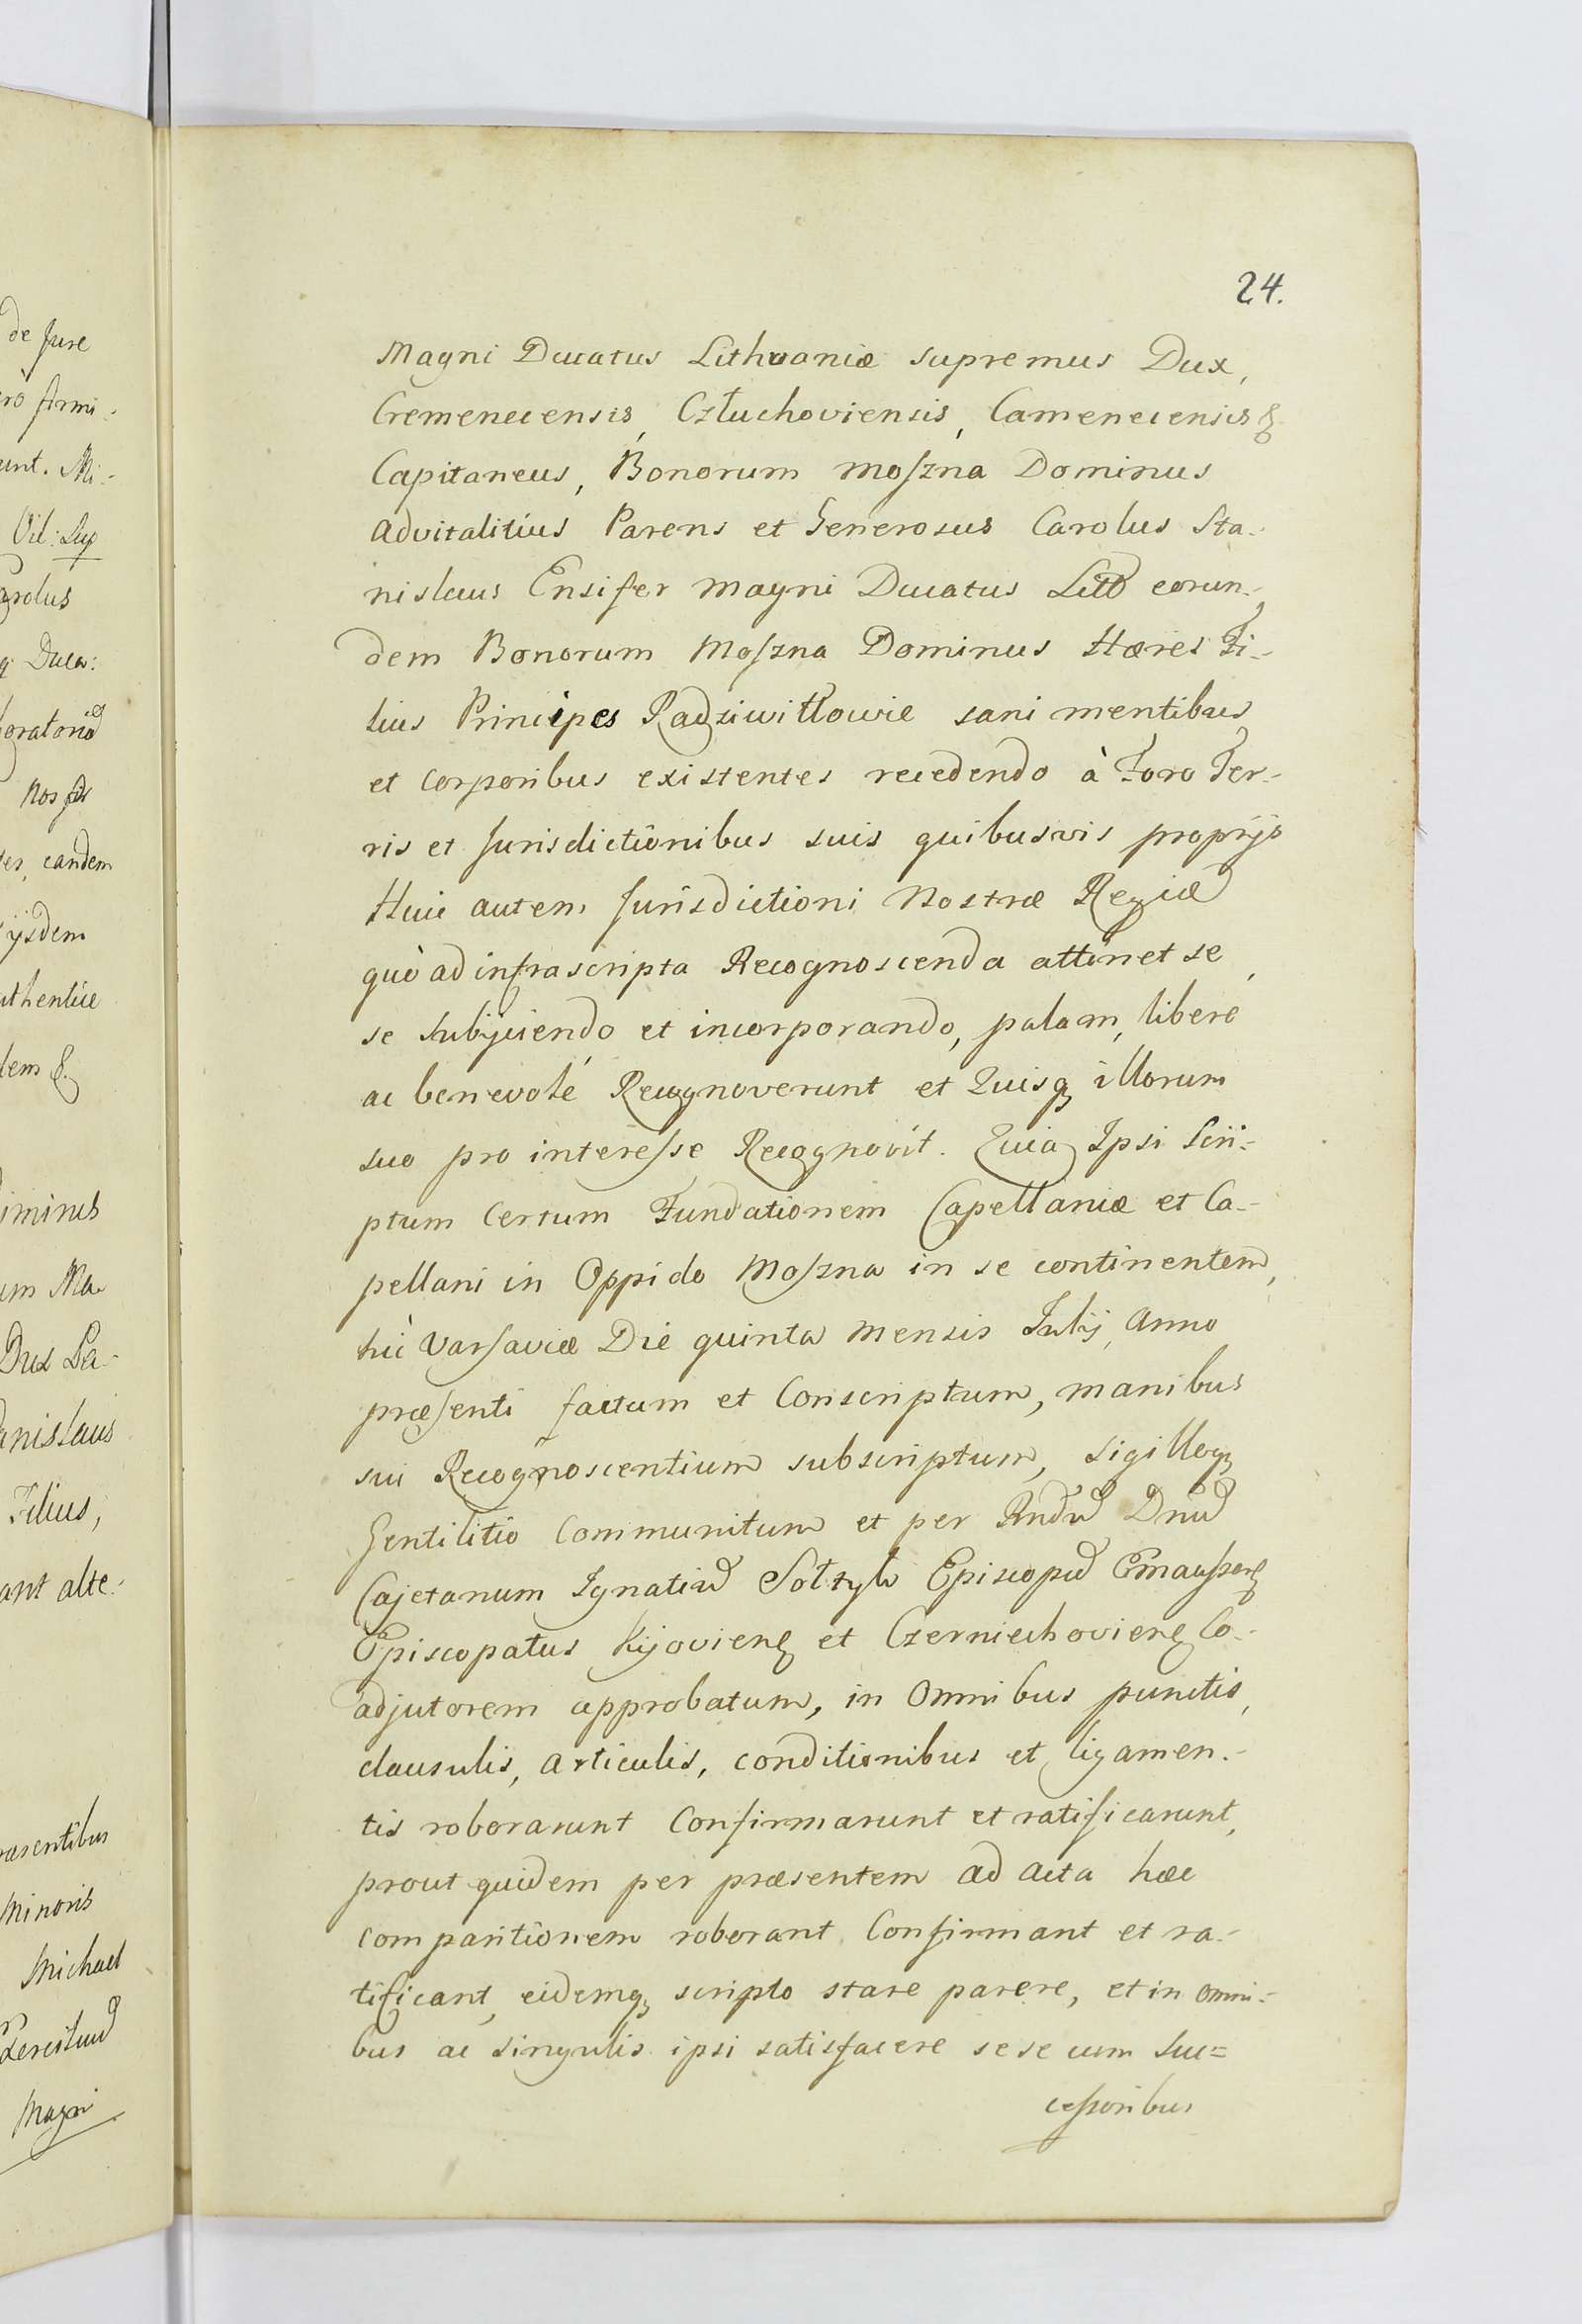 de Jure
rò firmi:
unt. Mi:
Vil: Sup
arolus
q. Ducō:
oratorid
Nos ad
er, eandem
ijsdem
uthentice
dem &
iminus
um Ma
Dux Li-
anislaus
Filius,
ant alte:
ræsentibus
Minoris
Michael
Exercituu
Magni
24.
Magni Ducatus Lithvaniæ supremus Dux,
Cremenecensis, Człuchoviensis, Camenecensis &
Capitaneus, Bonorum Moſzna Dominus
advitalitius Parens et Generosus Carolus Sta-
nislaus Ensifer Magni Ducatus Litt eorun-
dem Bonorum Moſzna Dominus Hæres Fi-
lius Principes Radziwiłłowie sani mentibus
et corporibus existentes recedendo à Foro Ter-
ris et Jurisdictionibus suis quibusvis proprijs
Huic autem Jurisdictioni Nostræ Regiæ
quò ad infrascripta Recognoscenda attinet se,
se subijciendo et incorporando, palam, liberè
ac benevolé Recognoverunt et Quisq illorum
suo pro intereſse Recognovit. Quia Ipsi Scri-
ptum certum Fundationem Capellaniæ et Ca-
pellani in Oppido Moſzna in se continentem,
hic Varſaviæ Die quinta mensis Julij, anno
præſenti factum et Conscriptum, manibus
sui Recognoscentium subscriptum, sigilloq
Gentilitio Communitum et per Rndu Dnu
Cajetanum Ignatiu Sołtyk Episcopu Emauſsen
Episcopatus Kijovien et Czerniechovien Co-
adjutorem approbatum, in Omnibus punctis,
clausulis, articulis, conditionibus et ligamen-
tis roborarunt Confirmarunt et ratificarunt,
prout quidem per præsentem ad acta hæc
comparitionem roborant Confirmant et ra-
tificant, eidemq scripto stare parere, et in omni-
bus ac singulis ipsi satisfacere sese cum Suc=
ceſsoribus